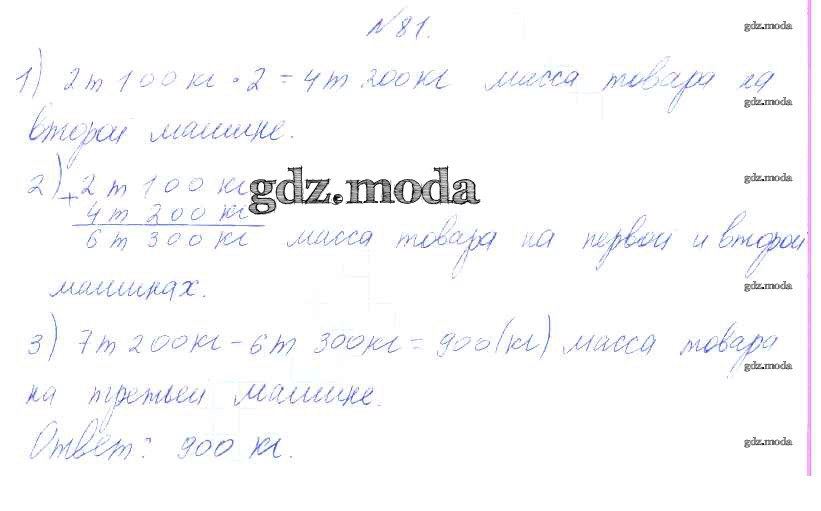 №81.
gdz.moda
1) 2т 100кг · 2 = 4т 200кг масса товара на
gdz.moda
второй машине.
2) 2т 100 кг gdz.moda
gdz.moda
+ 4т 200 кг
6т 300 кг масса товара на первой и второй
gdz.moda
машинах.
gdz.moda
3) 7т 200кг - 6т 300кг = 900(кг) масса товара
gdz.moda
на третьей машине.
Ответ: 900 кг.
gdz.moda